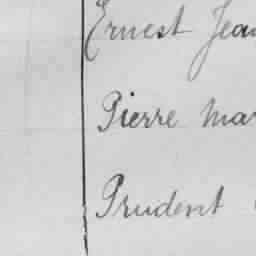 Ernest Jean
Pierre Mar
Prudent